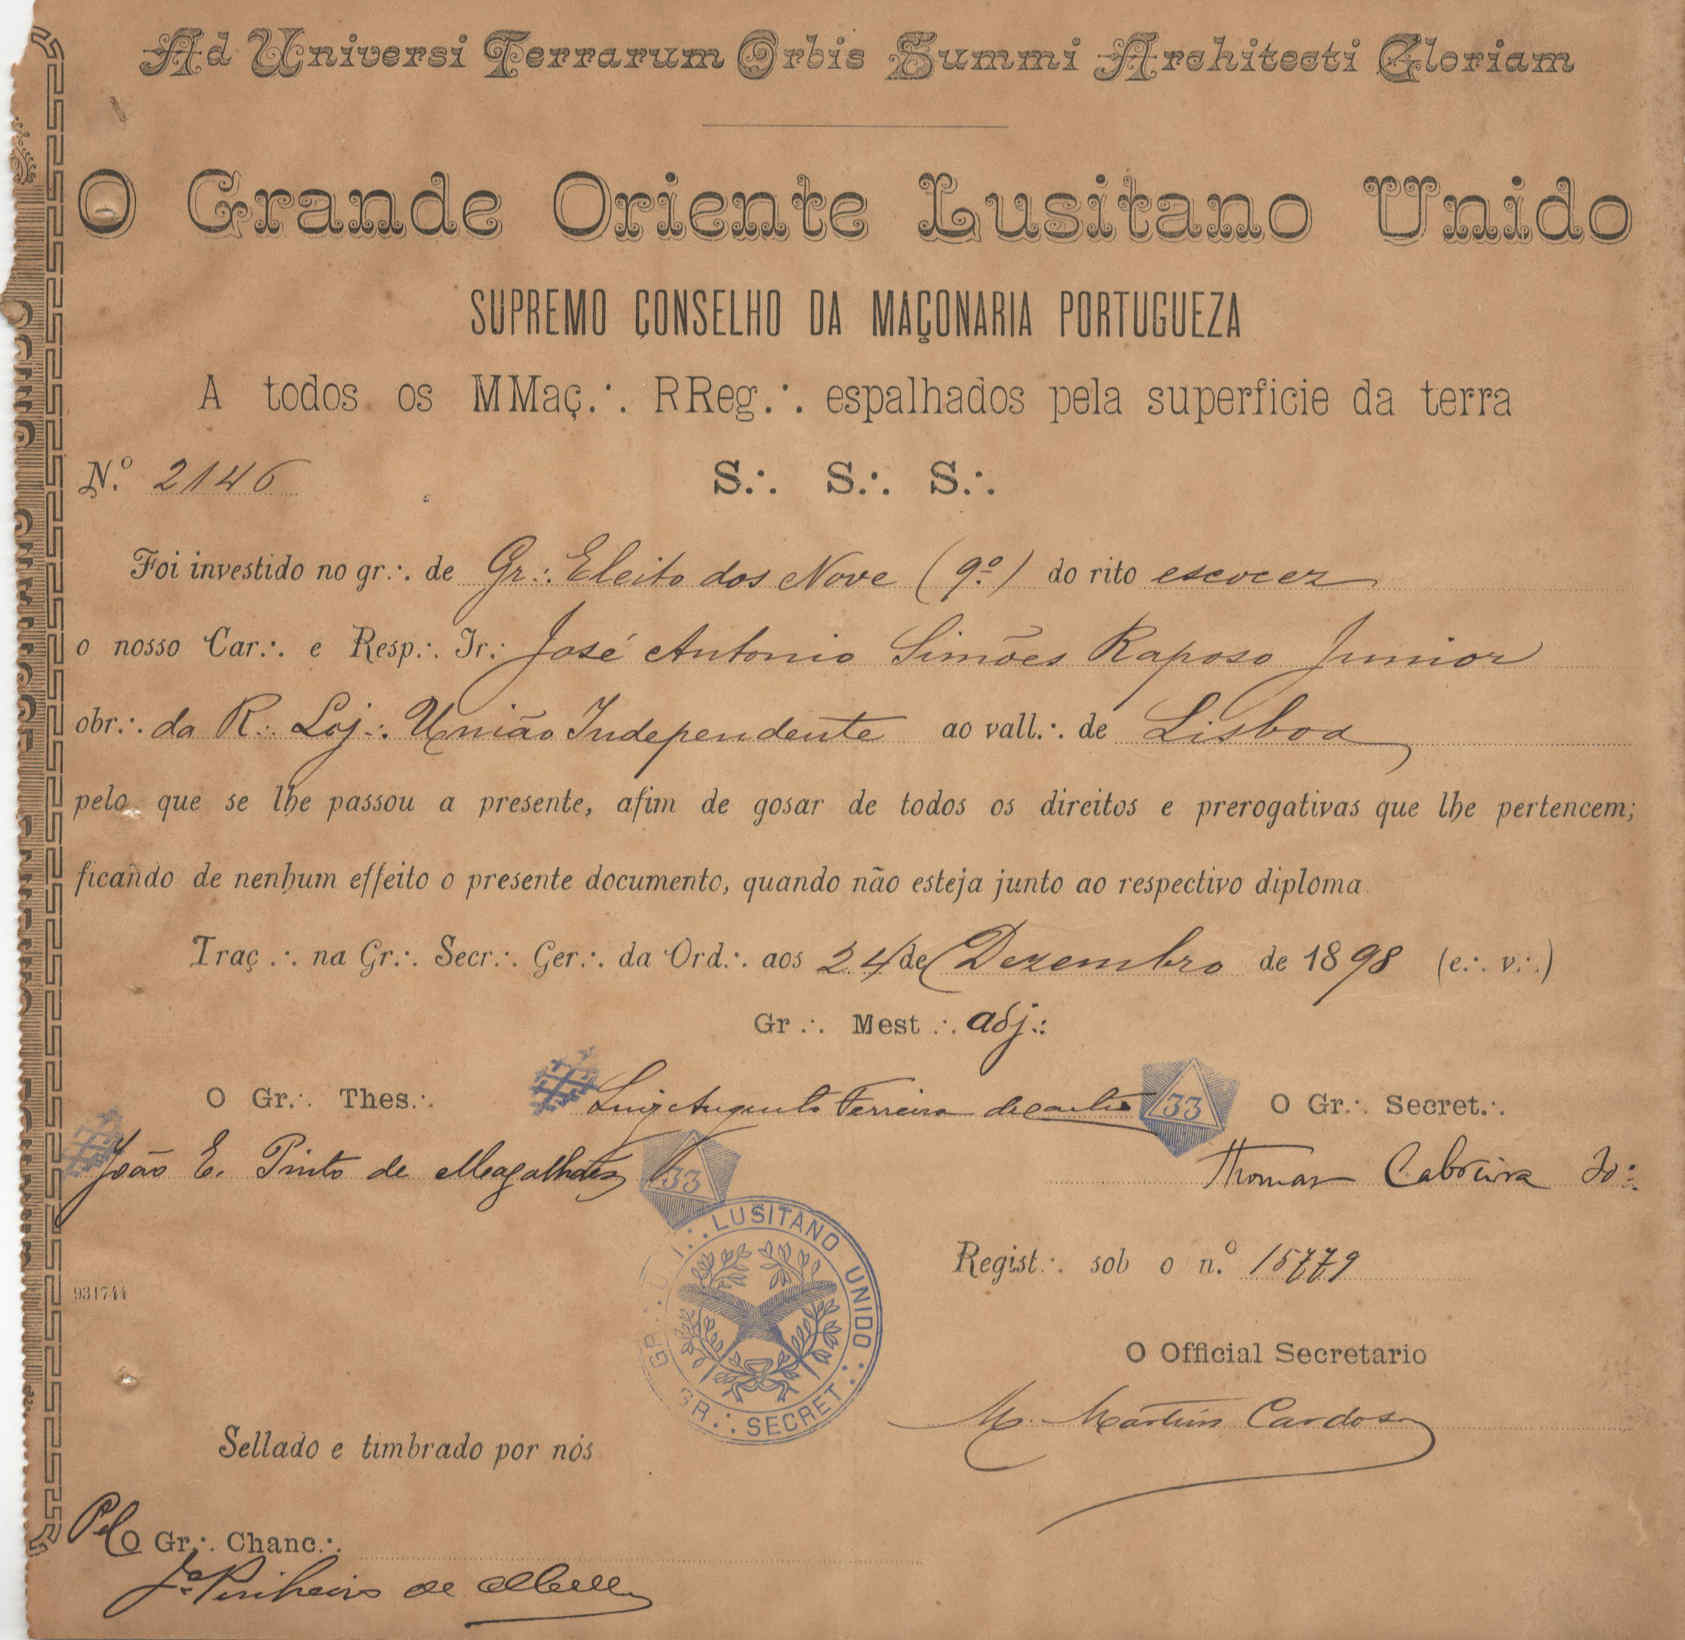 Ad Universi Terrarum Orbis Summi Architecti Gloriam
O Grande Oriente Lusitano Unido
SUPREMO CONSELHO DA MAÇONARIA PORTUGUEZA
A todos os MMaç.∴ RReg.∴ espalhados pela superficie da terra
N.º 2146 S.∴ S.∴ S.∴
Foi investido no gr.∴ de Gr.∴ Eleito dos Nove (9.º) do rito escocez
o nosso Car.∴ e Resp.∴ Ir.∴ José Antonio Simões Raposo Junior
obr.∴ da R.∴ Loj.∴ União Independente ao vall.∴ de Lisboa
pelo que se lhe passou a presente, afim de gosar de todos os direitos e prerogativas que lhe pertencem;
ficando de nenhum effeito o presente documento, quando não esteja junto ao respectivo diploma
Traç.∴ na Gr.∴ Secr.∴ Ger.∴ da Ord.∴ aos 24 de Dezembro de 1898 (e.∴ v.∴)
Gr.∴ Mest.∴ adj.∴
O Gr.∴ Thes.∴ Luiz Augusto Ferreira de Castro 33 O Gr.∴ Secret.∴
João E. Pinto de Magalhães 33 Thomaz Cabreira
GR.∴ O.∴ LUSITANO UNIDO
GR.∴ SECRET.∴
Regist.∴ sob o n.º 15779
931744
O Official Secretario
M. Martins Cardoso
Sellado e timbrado por nós
Pel O Gr.∴ Chanc.∴
Pinheiro de Mello